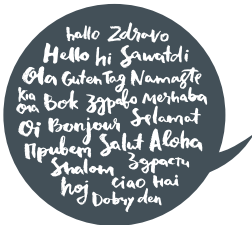 hallo Zdravo
Hello hi Sawatdi
Ola Guten Tag Namaste
Kia ora Bok Здраво Merhaba
Oi Bonjour Selamat
Привет Salut Aloha
Shalom Здрасти
hoj ciao Hai
Dobry den